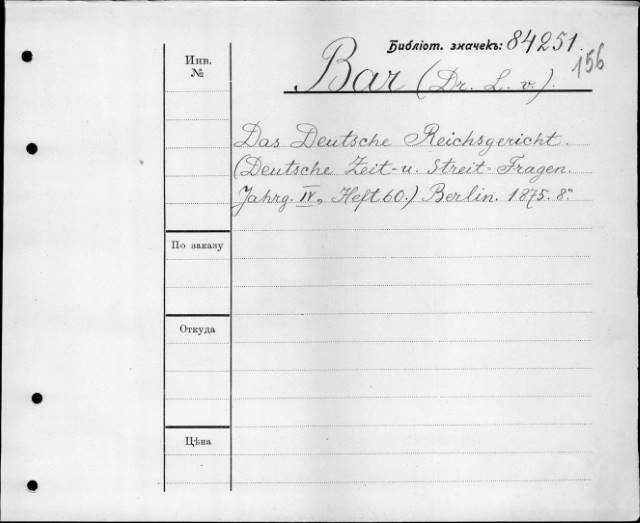 Библіот. значекъ: 84251.
156
Инв. №
Bar (Dr. L. v.).
Das Deutsche Reichsgericht.
(Deutsche Zeit- u. Streit-Fragen.
Jahrg. IV, Heft 60.) Berlin. 1875. 8º
По заказу
Откуда
Цѣна